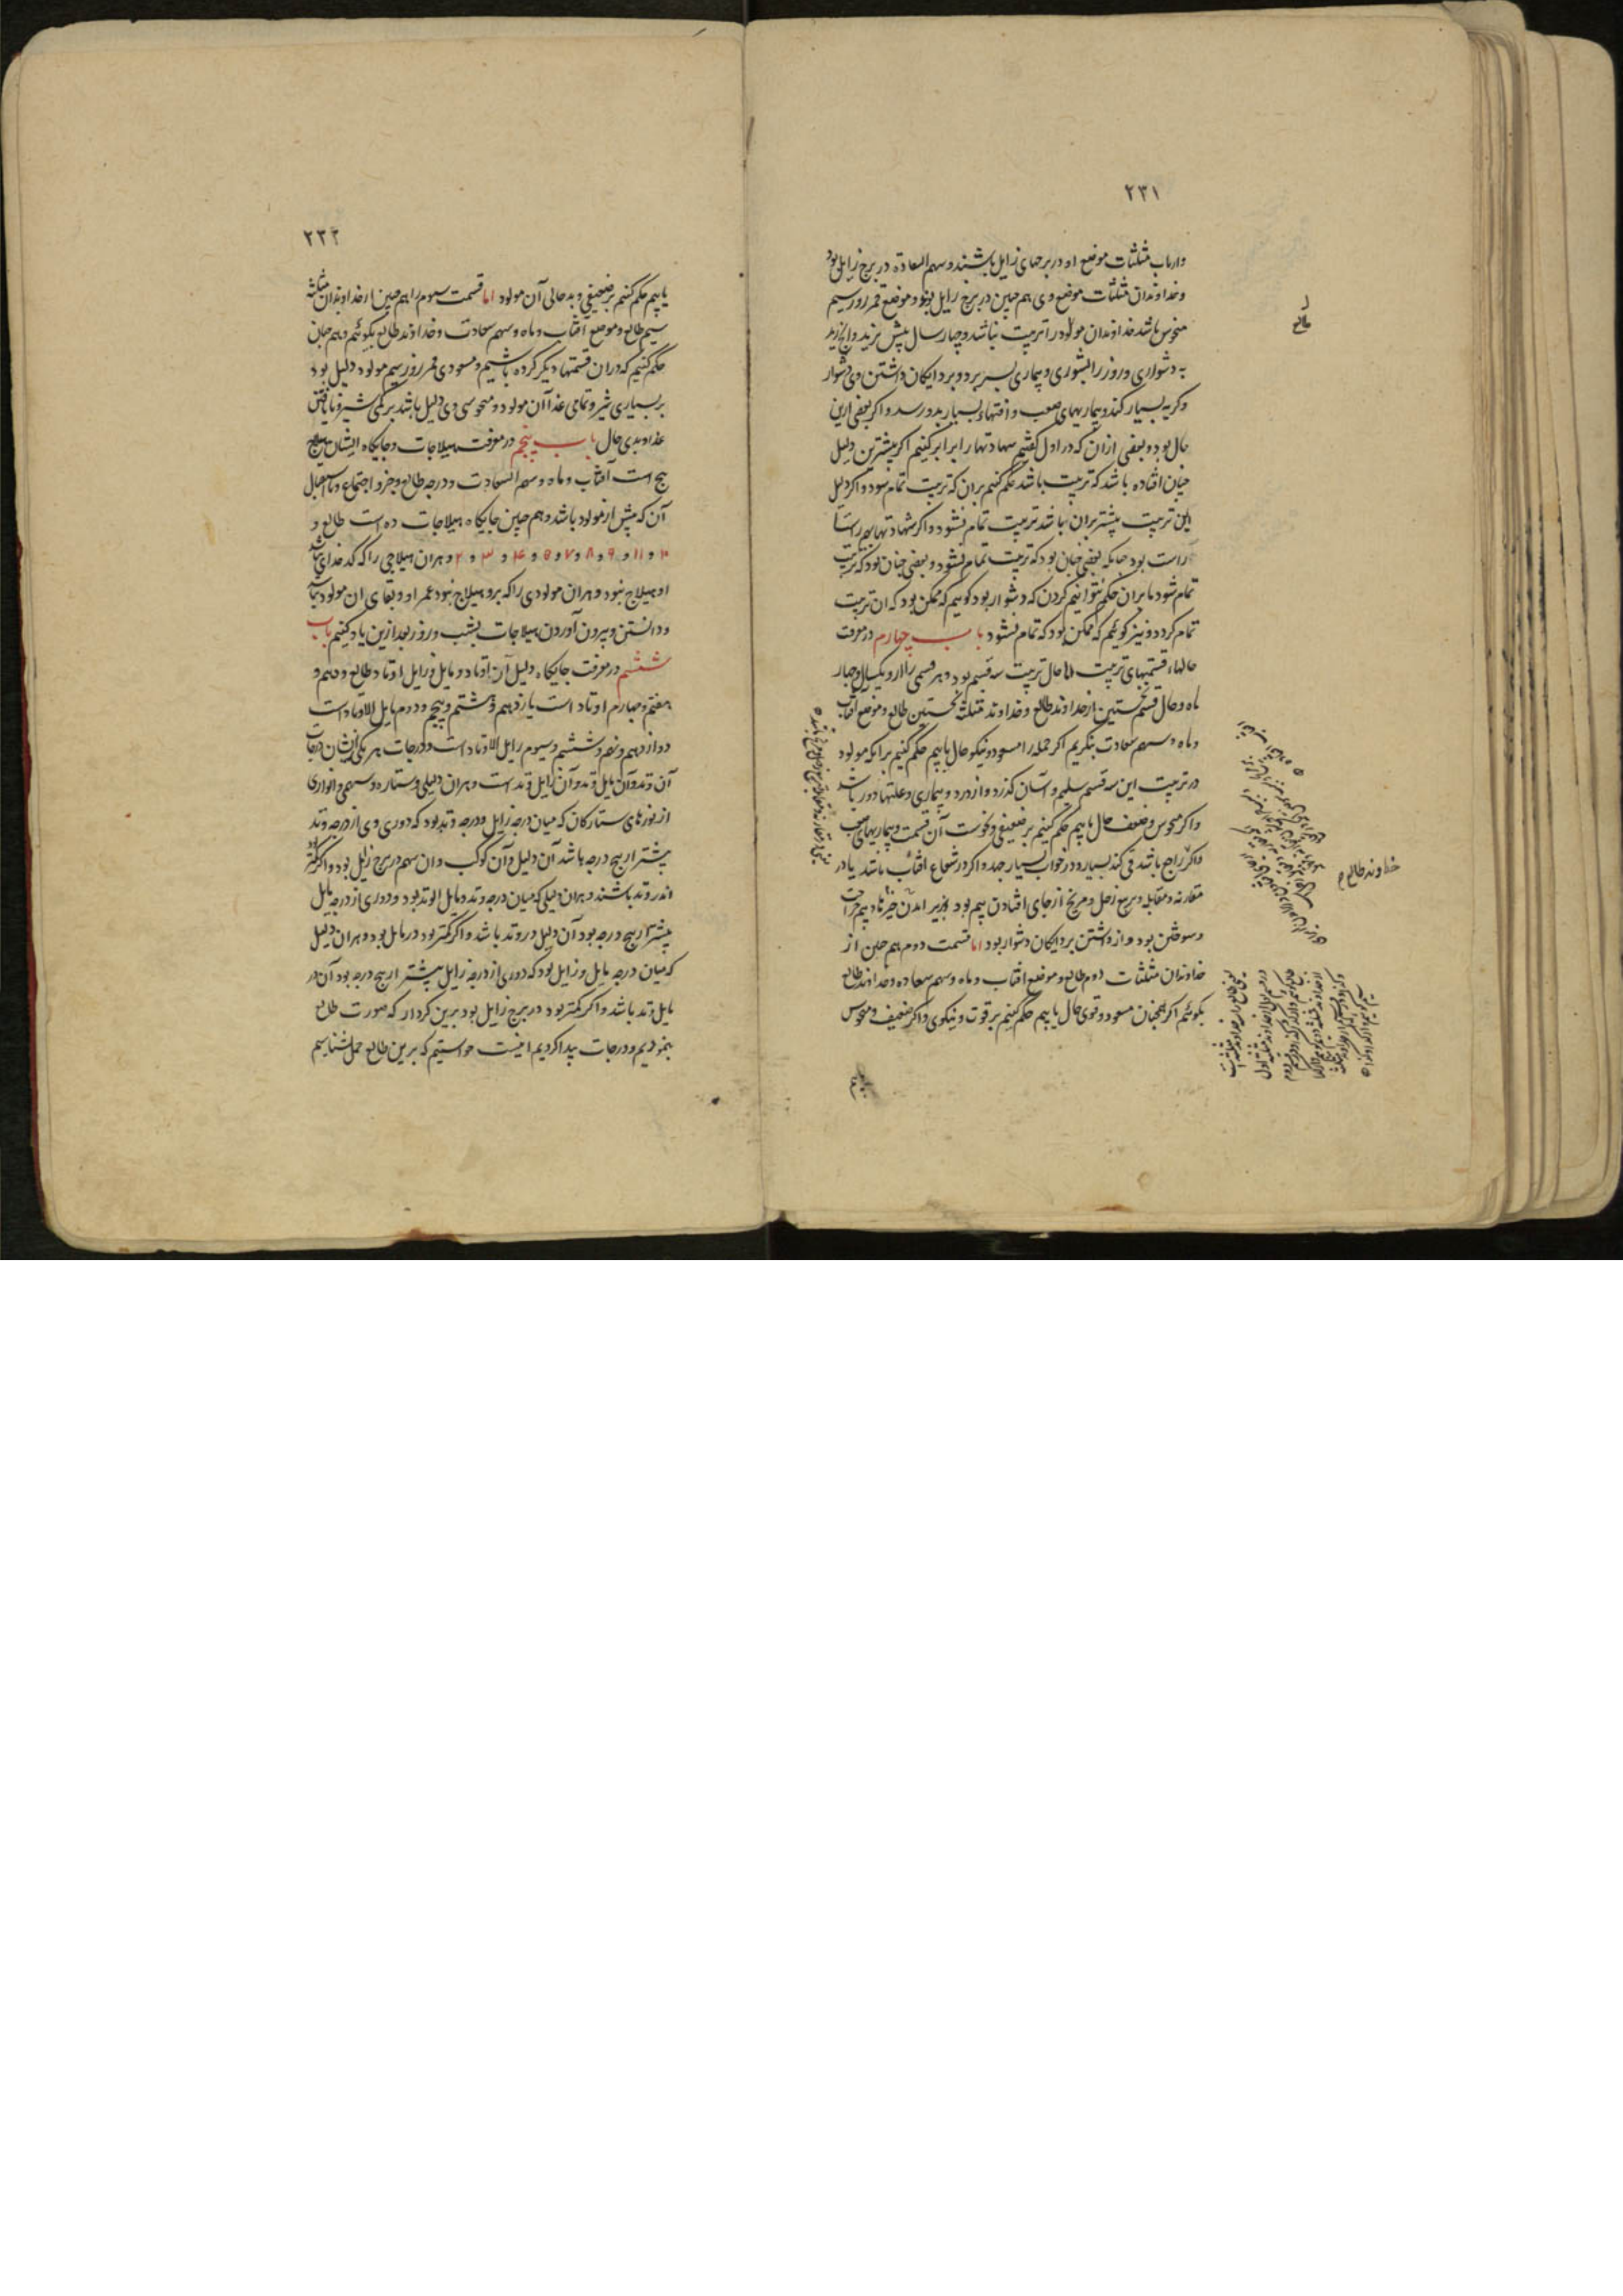 ۲۳۱
وارباب مثلثات موضع او در برجهای زایل باشند و سهم السعادة در برج زایل بود
و خداوندان مثلثات موضع وی هم چنین در برج زایل بوند و موضع قمر روز سیم
منحوس باشد خداوندان مولود را تربیت نباشد و چهار سال بیش نزید و آنچ زید
به دشواری و روز را بشوری و بیماری بسر برد و بر دایکان داشتن وی دشوار
و کریه بسیار کند و بیماریهای صعب و آفتهاء بسیار بدو رسد و اکر بعضی ازین
حال بود و بعضی از ان که در اول کفتیم شهادتها را برابر کنیم اکر بیشترین دلیل
چنان افتاده باشد که تربیت باشد حکم کنیم بران که تربیت تمام شود و اکر دلیل
این تربیت بیشتر بران باشد تربیت تمام نشود و اکر شهادتها بهم راستا
راست بود چنانکه بعضی چنان بود که تربیت تمام نشود و بعضی چنان بود که تربیت
تمام شود ما بران حکم نتوانیم کردن که دشوار بود کوییم که ممکن بود که ان تربیت
تمام کردد و نیز کوئیم که ممکن بود که تمام نشود باب چهارم در معرفت
حالهاء قسمتهای تربیت اما حال تربیت سه قسم بود و هر قسمی را از و یکسال و چهار
ماه و حال قسم نخستین از خداوند طالع و خداوند مثلثه نخستین طالع و موضع آفتاب
و ماه و سهم سعادت بنکریم اکر جمله را مسعود و نیکو حال یابیم حکم کنیم برانکه مولود
در تربیت این سه قسم سلیم و آسان کذرد و از درد و بیماری و علتها دور باشد
و اکر منحوس و ضعیف حال یابیم حکم کنیم بر ضعیفی و نحوست آن قسمت و بیماریهای صعب
و اکر راجع باشد قی کند بسیار و در خواب بسیار جهد و اکر در شعاع افتاب باشد یا در
مقارنه و مقابله و تربیع زحل و مریخ از جای افتادن بیم بود و بزیر آمدن چیزها و بیم جراحت
و سوختن بود و از داشتن بر دایکان دشوار بود اما قسمت دوم هم چنین از
خداوندان مثلثات دوم طالع و موضع افتاب و ماه و سهم سعاده و خداوند طالع
بکوئیم اکر همچنان مسعود و قوی حال یابیم حکم کنیم بر قوت و نیکوی و اکر ضعیف و منحوس
یابیم
طالع
خداوند طالع
۲۳۲
یابیم حکم کنیم بر ضعیفی و بد حالی آن مولود اما قسمت سیوم را هم چنین از خداوندان مثلثه
سیم طالع و موضع آفتاب و ماه و سهم سعادت و خداوند طالع بکوئیم و هم چنان
حکم کنیم که دران قسمتهاء دیکر کرده باشیم و مسعودی قمر روز سیم مولود دلیل بود
بر بسیاری شیر و تمامی غذا آن مولود و منحوسی وی دلیل باشد بر کمی شیر و نایافتن
غذا و بدی حال باب پنجم در معرفت هیلاجات و جایکاه ایشان هیلاج
پنج است آفتاب و ماه و سهم السعادت و درجه طالع و جزو اجتماع و استقبال
آن که پیش از مولود باشد و هم چنین جایکاه هیلاجات ده است طالع و
۱۰ و ۱۱ و ۹ و ۸ و ۷ و ۵ و ۴ و ۳ و ۲ و هران هیلاجی را که کدخدای نباشد
او هیلاج نبود و هران مولودی را که برو هیلاج نبود عمر او و بقای ان مولود نباشد
و دانستن و بیرون آوردن هیلاجات بشب و روز بعد ازین یاد کنیم باب
ششم در معرفت جایکاه دلیل آن اوتاد و مایل و زایل اوتاد طالع و دهم و
هفتم و چهارم اوتاد است یازدهم و هشتم و پنجم و دوم مایل الاوتاد است
دوازدهم و نهم و ششم و سیوم زایل الاوتاد است و درجات هر یکی ازیشان درجات
آن وتد و آن مایل وتد و آن زایل وتد است و هران دلیلی و ستاره و سهمی و انواری
از نورهای ستارکان که میان درجه زایل و درجه وتد بود که دوری وی از درجه وتد
بیشتر از پنج درجه باشد آن دلیل و آن کوکب و ان سهم در برج زایل بود و اکر کمتر
اندر وتد باشند و هران دلیلی که میان درجه وتد و مایل الوتد بود و دوری از درجه مایل
بیشتر از پنج درجه بود آن دلیل در وتد باشد و اکر کمتر بود در مایل بود و هران دلیل
که میان درجه مایل و زایل بود که دوری از درجه زایل بیشتر از پنج درجه بود آن در
مایل وتد باشد و اکر کمتر بود در برج زایل بود برین کردار که صورت طالع
بنمودیم و درجات پیدا کردیم اینست خواستیم که برین طالع حمل شناسیم